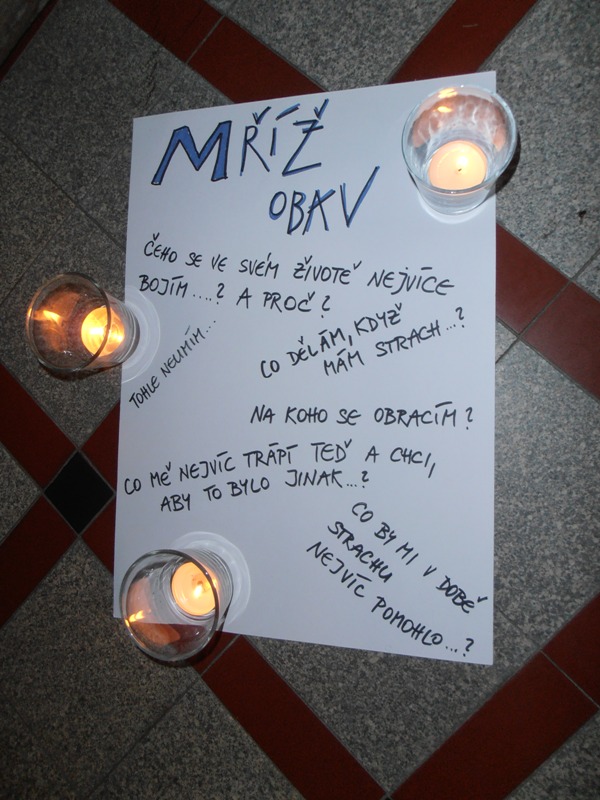 MŘÍŽ
OBAV
ČEHO SE VE SVÉM ŽIVOTĚ NEJVÍCE
BOJÍM....? A PROČ?
TOHLE NEUMÍM...
CO DĚLÁM, KDYŽ
MÁM STRACH...?
NA KOHO SE OBRACÍM?
CO MĚ NEJVÍC TRÁPÍ TEĎ A CHCI,
ABY TO BYLO JINAK...?
CO BY MI V DOBĚ
STRACHU
NEJVÍC POMOHLO...?